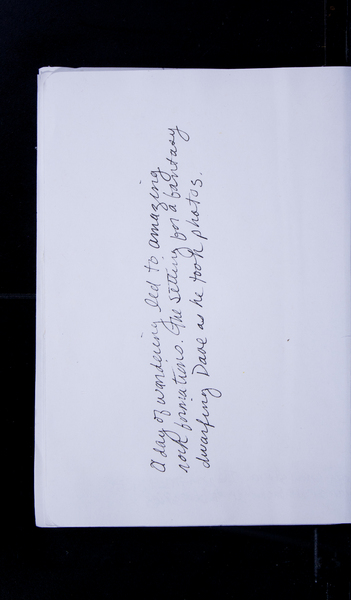 A day of wandering led to amazing
rock formations. The setting for a fantasy
dwarfing Dave as he took photos.